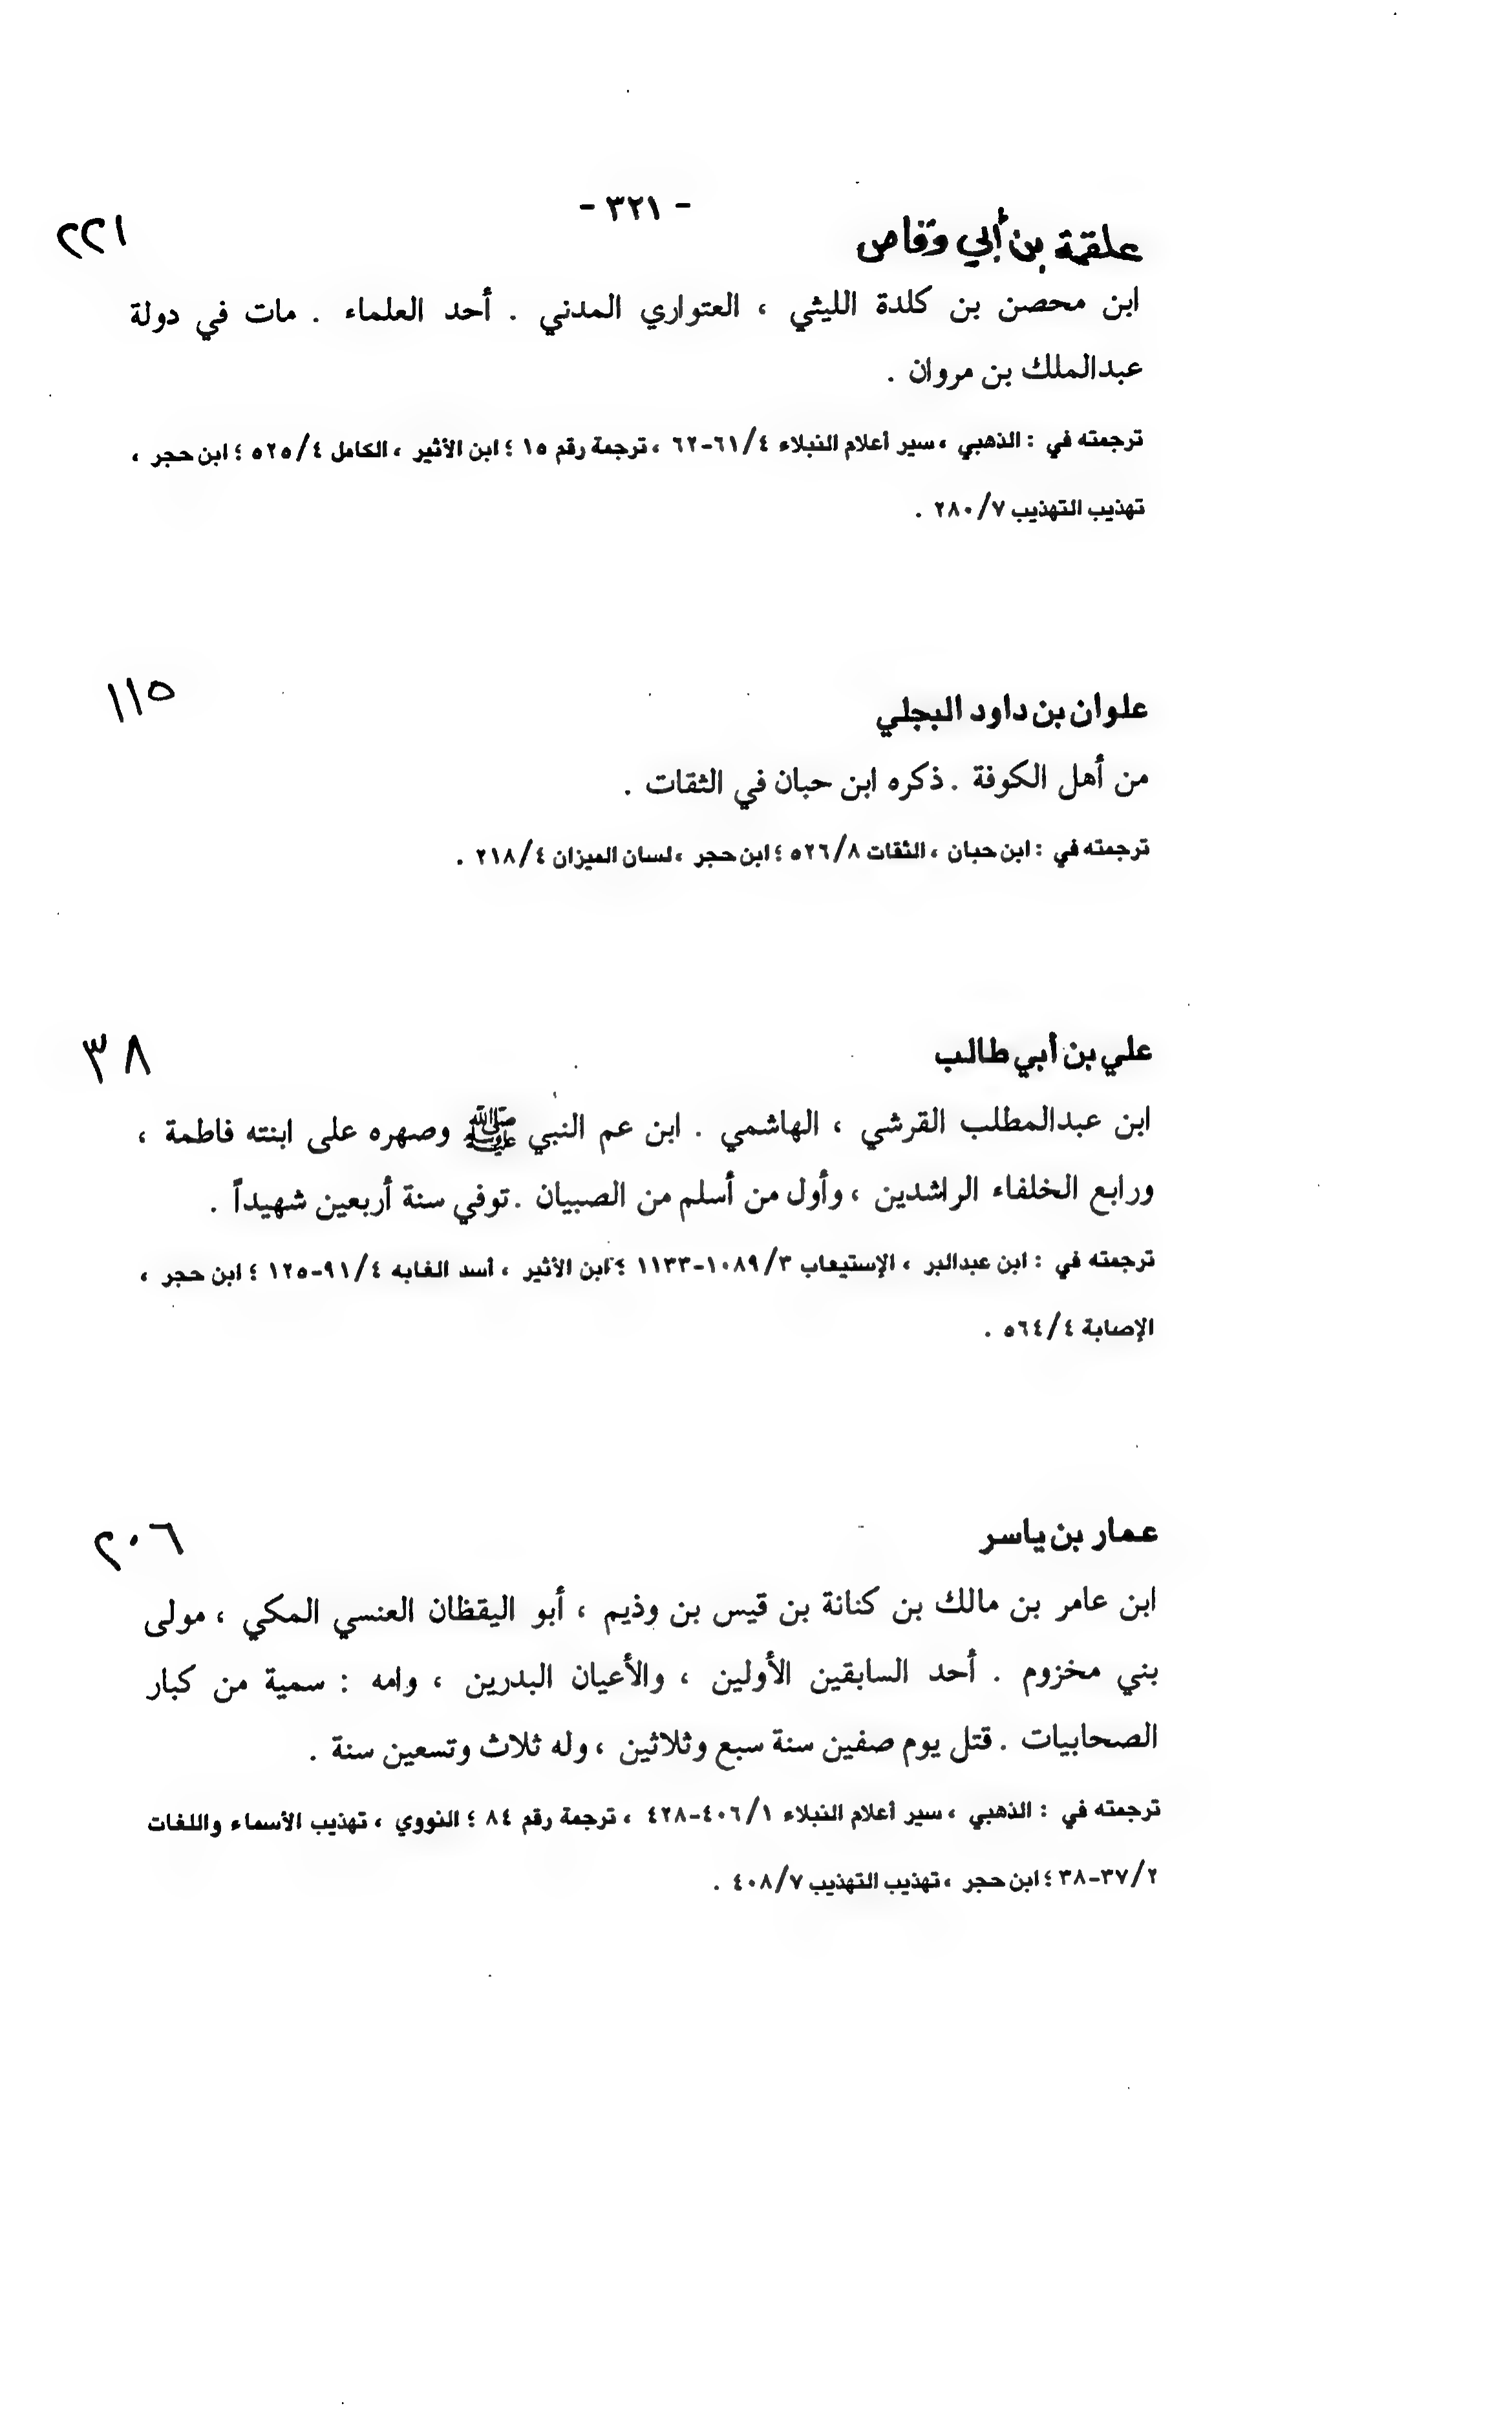 - ٣٢١ -
علقمة بن أبي وقاص ٢٢١
ابن محصن بن كلدة الليثي ، العتواري المدني . أحد العلماء . مات في دولة
عبدالملك بن مروان .
ترجمته في : الذهبي ، سير أعلام النبلاء ٦١/٤-٦٢ ، ترجمة رقم ١٥ ؛ ابن الأثير ، الكامل ٥٢٥/٤ ؛ ابن حجر ،
تهذيب التهذيب ٢٨٠/٧ .
علوان بن داود البجلي ١١٥
من أهل الكوفة . ذكره ابن حبان في الثقات .
ترجمته في : ابن حبان ، الثقات ٥٢٦/٨ ؛ ابن حجر ، لسان الميزان ٢١٨/٤ .
علي بن أبي طالب ٣٨
ابن عبدالمطلب القرشي ، الهاشمي . ابن عم النبي ﷺ وصهره على ابنته فاطمة ،
ورابع الخلفاء الراشدين ، وأول من أسلم من الصبيان . توفي سنة أربعين شهيداً .
ترجمته في : ابن عبدالبر ، الإستيعاب ١٠٨٩/٣-١١٣٣ ؛ ابن الأثير ، أسد الغابه ٩١/٤-١٢٥ ؛ ابن حجر ،
الإصابة ٥٦٤/٤ .
عمار بن ياسر ٢٠٦
ابن عامر بن مالك بن كنانة بن قيس بن وذيم ، أبو اليقظان العنسي المكي ، مولى
بني مخزوم . أحد السابقين الأولين ، والأعيان البدرين ، وامه : سمية من كبار
الصحابيات . قتل يوم صفين سنة سبع وثلاثين ، وله ثلاث وتسعين سنة .
ترجمته في : الذهبي ، سير أعلام النبلاء ٤٠٦/١-٤٢٨ ، ترجمة رقم ٨٤ ؛ النووي ، تهذيب الأسماء واللغات
٣٧/٢-٣٨ ؛ ابن حجر ، تهذيب التهذيب ٤٠٨/٧ .